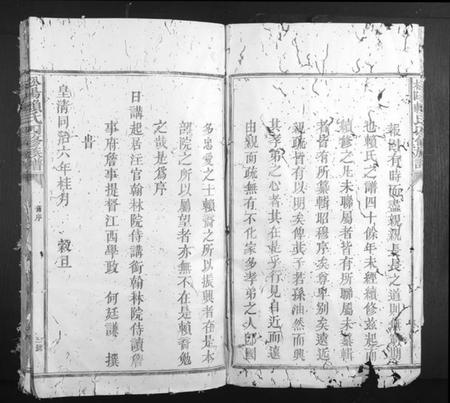 報有時而盡親親長長之道則
也賴氏之譜四十餘年未經續修茲起而
續修之凡未聯屬者皆有所聯屬未纂輯
者皆有所纂輯昭穆序矣尊卑別矣遠近
親疏皆有以明矣俾其子若孫油然而興
其孝弟之心者其在是乎行見自近而遠
由親而疏無有不化家多孝弟之人
多忠愛之士賴耆之所以振興者在是本
部院之所以屬望者亦無不在是賴耆勉
之哉是為序
日講起居注官翰林院侍講銜翰林院侍讀詹
事府詹事提督江西學政 何廷謙 撰
皇清同治六年桂月 穀旦
序